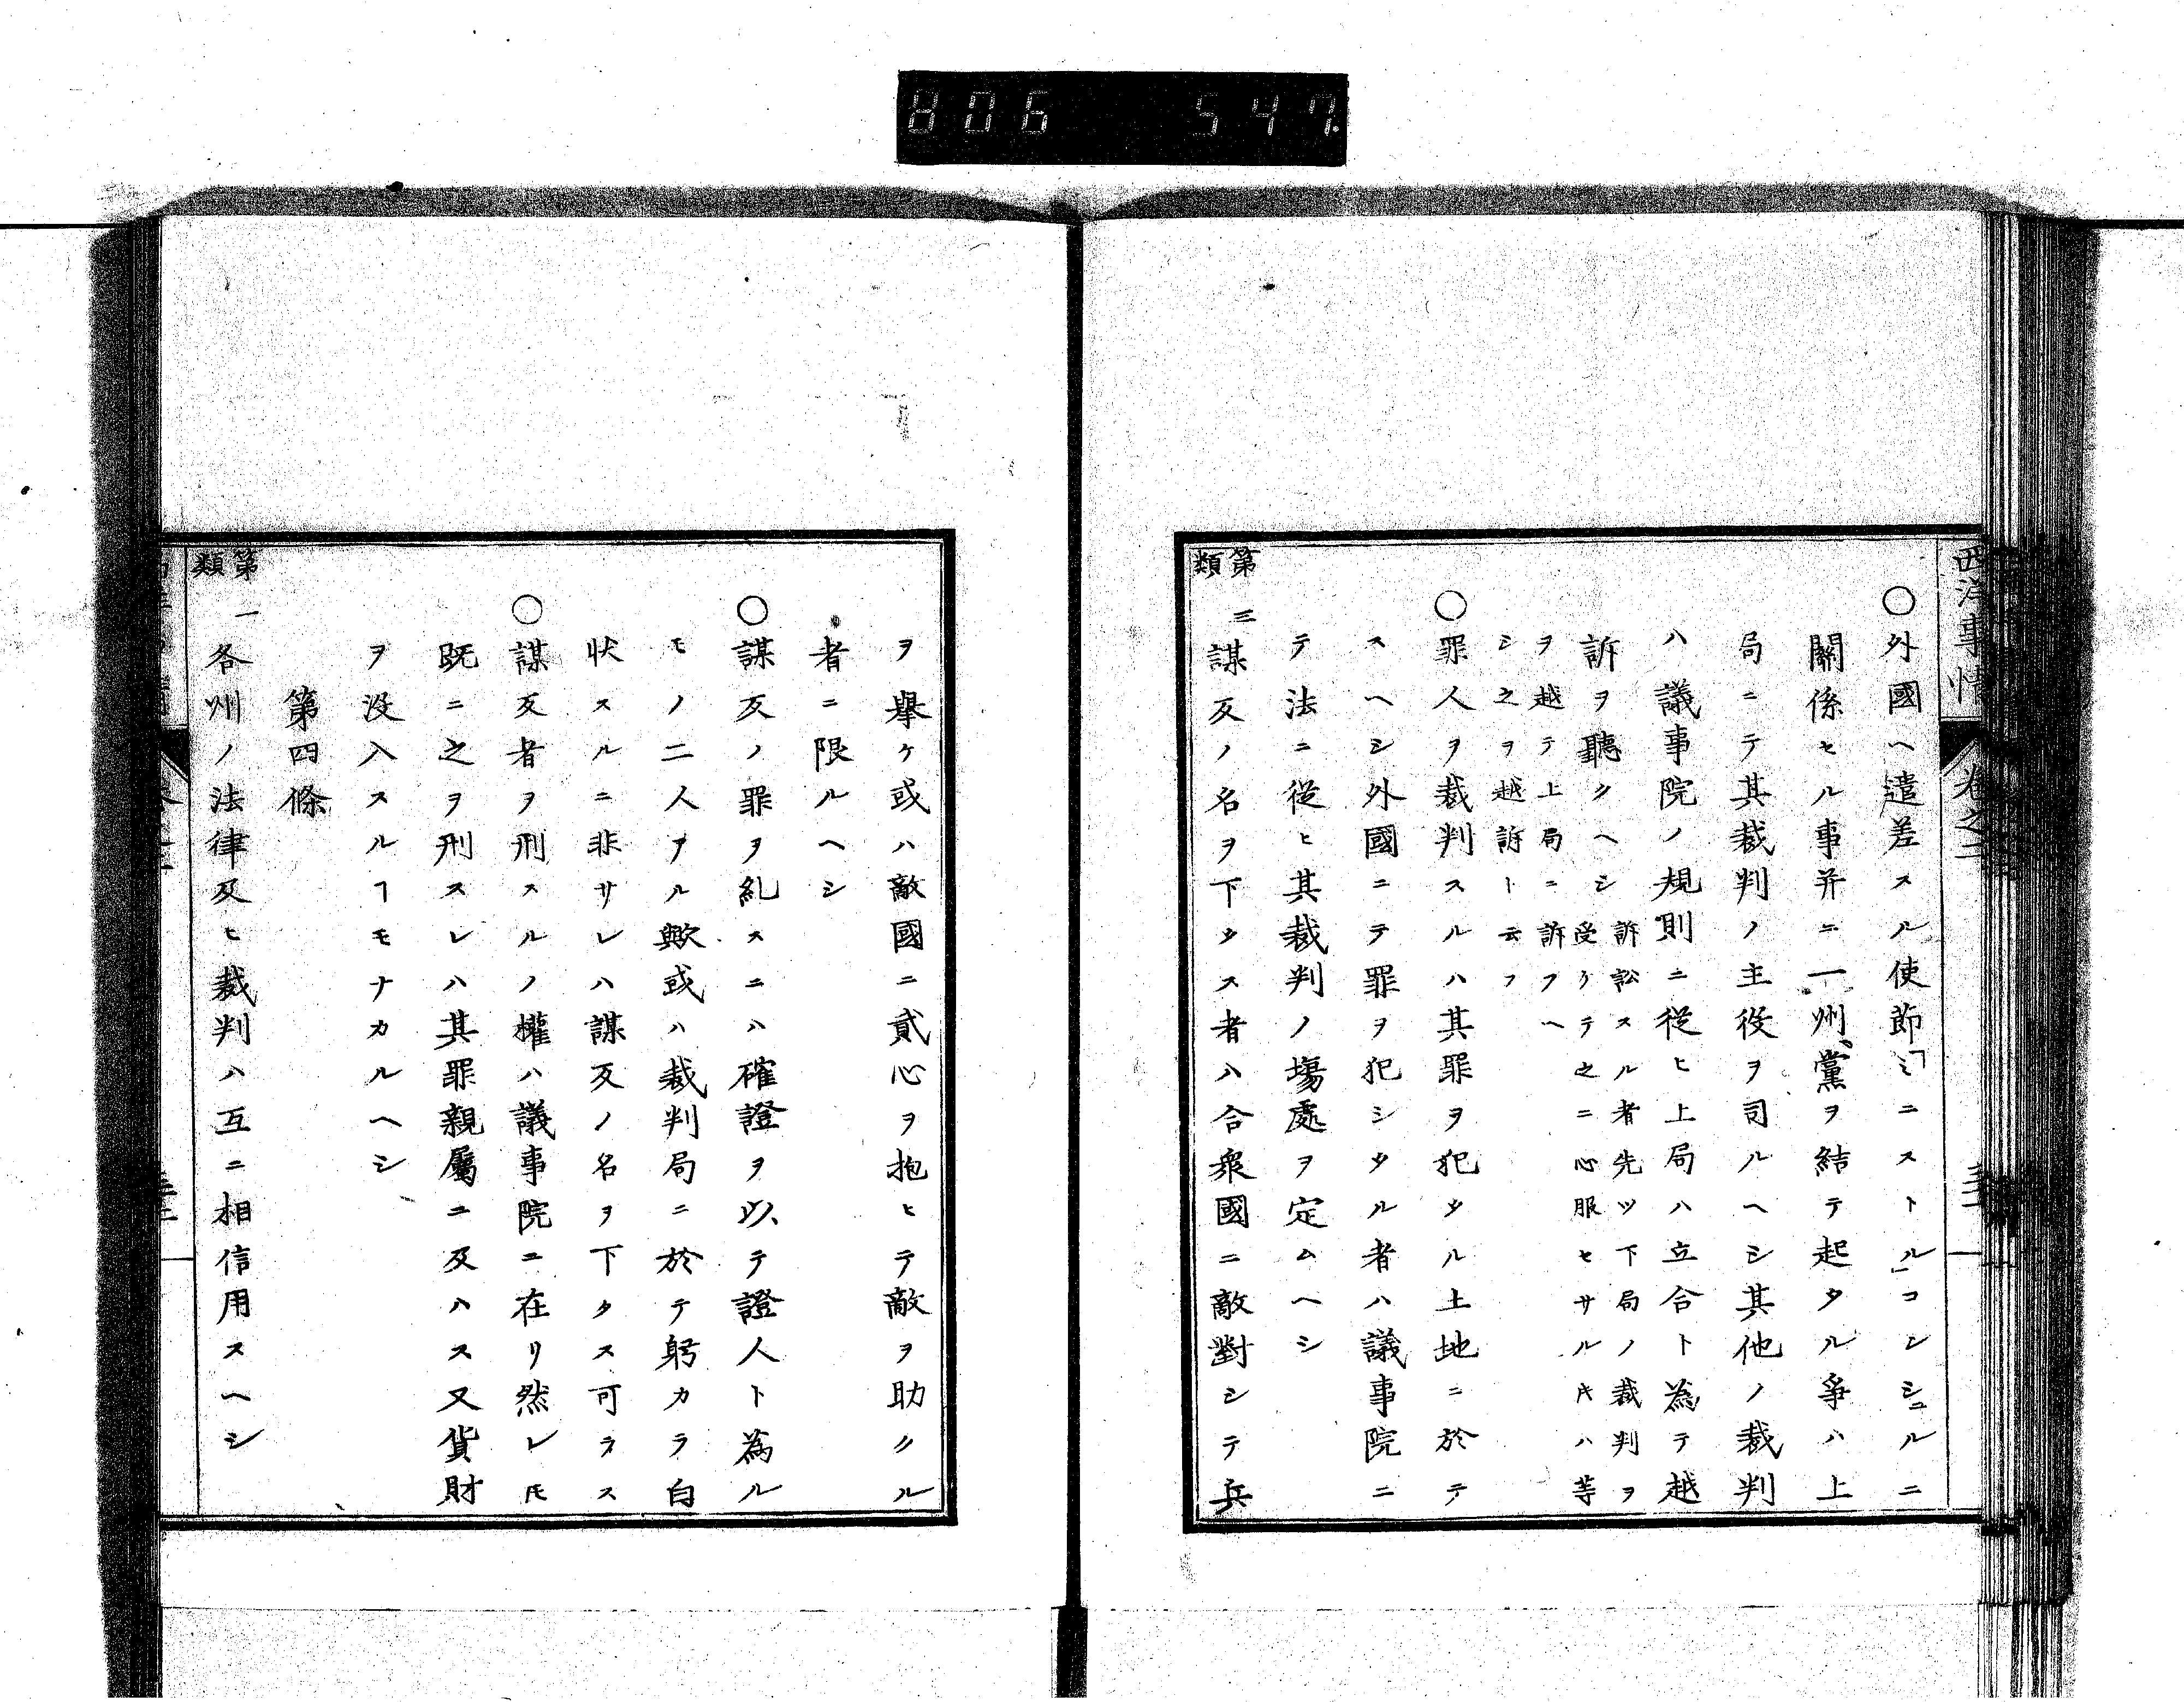 806 547.
西洋事情 卷之二
〇外國ヘ遣差スル使節「ミニストル」コンシュルニ
關係セル事并ニ一州黨ヲ結テ起タル爭ハ上
局ニテ其裁判ノ主役ヲ司ルヘシ其他ノ裁判
ハ議事院ノ規則ニ從ヒ上局ハ立合ト為テ越
訴ヲ聽クヘシ
訴訟スル者先ツ下局ノ裁判ヲ
受ケテ之ニ心服セサルキハ等
ヲ越テ上局ニ訴フヘ
シ之ヲ越訴ト云フ
〇罪人ヲ裁判スルハ其罪ヲ犯タル土地ニ於テ
スヘシ外國ニテ罪ヲ犯シタル者ハ議事院ニ
テ法ニ從ヒ其裁判ノ塲處ヲ定ムヘシ
第三類
謀反ノ名ヲ下タス者ハ合衆國ニ敵對シテ兵
ヲ擧ケ或ハ敵國ニ貳心ヲ抱ヒテ敵ヲ助クル
者ニ限ルヘシ
〇謀反ノ罪ヲ糺スニハ確證ヲ以テ證人ト為ル
モノ二人アル歟或ハ裁判局ニ於テ躬カラ白
状スルニ非サレハ謀反ノ名ヲ下タス可ラス
〇謀反者ヲ刑スルノ權ハ議事院ニ在リ然レ𪜈
既ニ之ヲ刑スレハ其罪親屬ニ及ハス又貨財
ヲ没入スルヿモナカルヘシ
第四條
第一類
各州ノ法律及ヒ裁判ハ互ニ相信用スヘシ